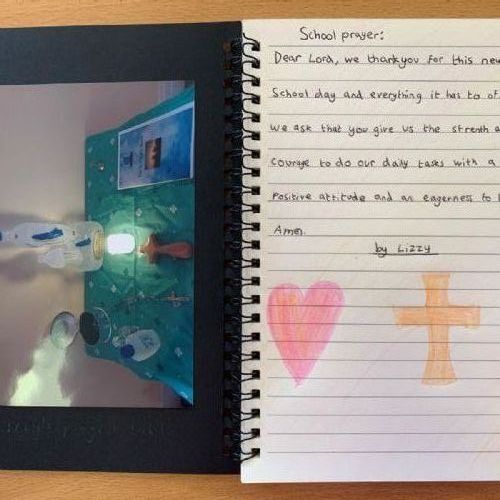 School prayer:
Dear Lord, we thankyou for this new
School day and everything it has to of
we ask that you give us the strenth a
courage to do our daily tasks with a
Positive attitude and an eagerness to l
Amen.
by Lizzy